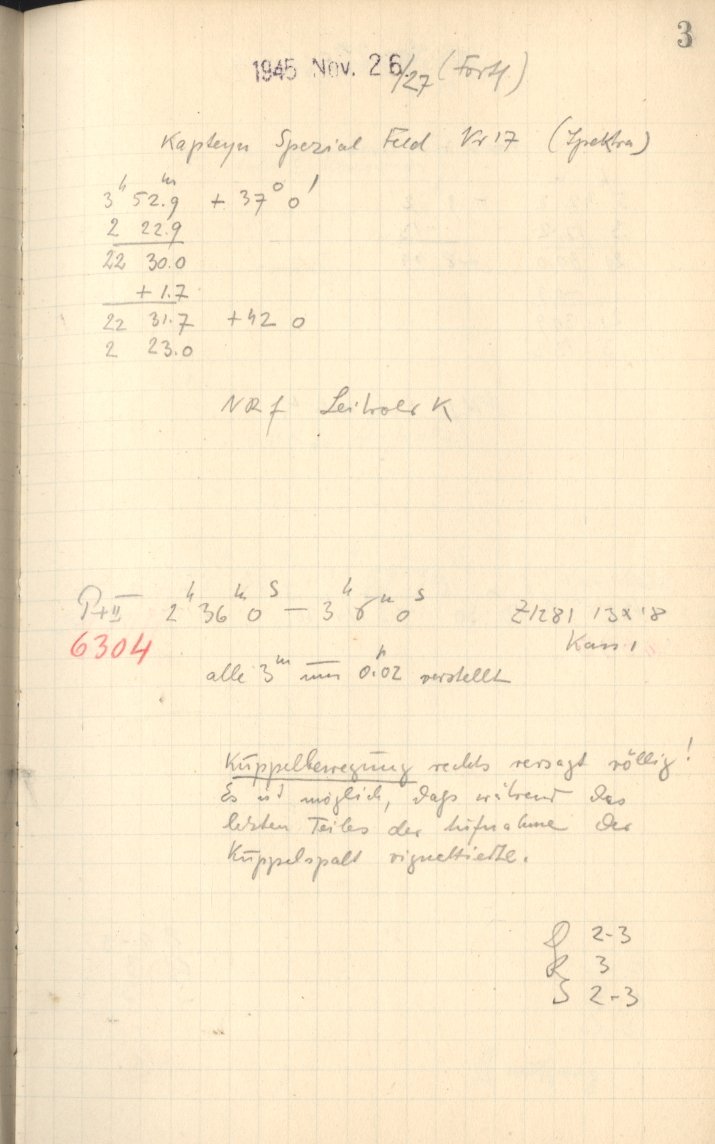 3
1945 Nov. 26/27 (Forts.)
Kapteyn Spezial Feld Nr 17 (Spektra)
3h 52.9m + 37° 0'
2 22.9
22 30.0
+ 1.7
22 31.7 +42 0
2 23.0
NR f Leitrohr K
P+II 2h 36m 0s — 3h 6m 0s Z1281 13x18
6304 Kass 1
alle 3m um 0.02 verstellt
Kuppelbewegung rechts versagt völlig!
Es ist möglich, dass während des
letzten Teiles der Aufnahme der
Kuppelspalt vignettierte.
2-3
R 3
S 2-3